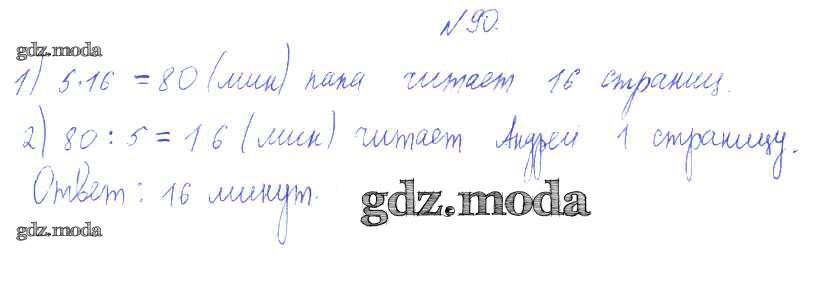 №90.
gdz.moda
1) 5·16 = 80 (мин) папа читает 16 страниц.
2) 80 : 5 = 16 (мин) читает Андрей 1 страницу.
Ответ: 16 минут.
gdz.moda
gdz.moda